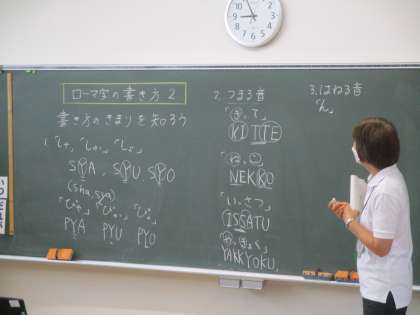 ローマ字の書き方 2
書き方のきまりを知ろう
1.「しゃ」「しゅ」「しょ」
SYA SYU SYO
(sha, sya)
「ぴゃ」「ぴゅ」「ぴょ」
PYA PYU PYO
2. つまる音
「きって」
KITTE
「ねっこ」
NEKKO
「いっさつ」
ISSATU
YAKKYOKU
3. はねる音
「ん」